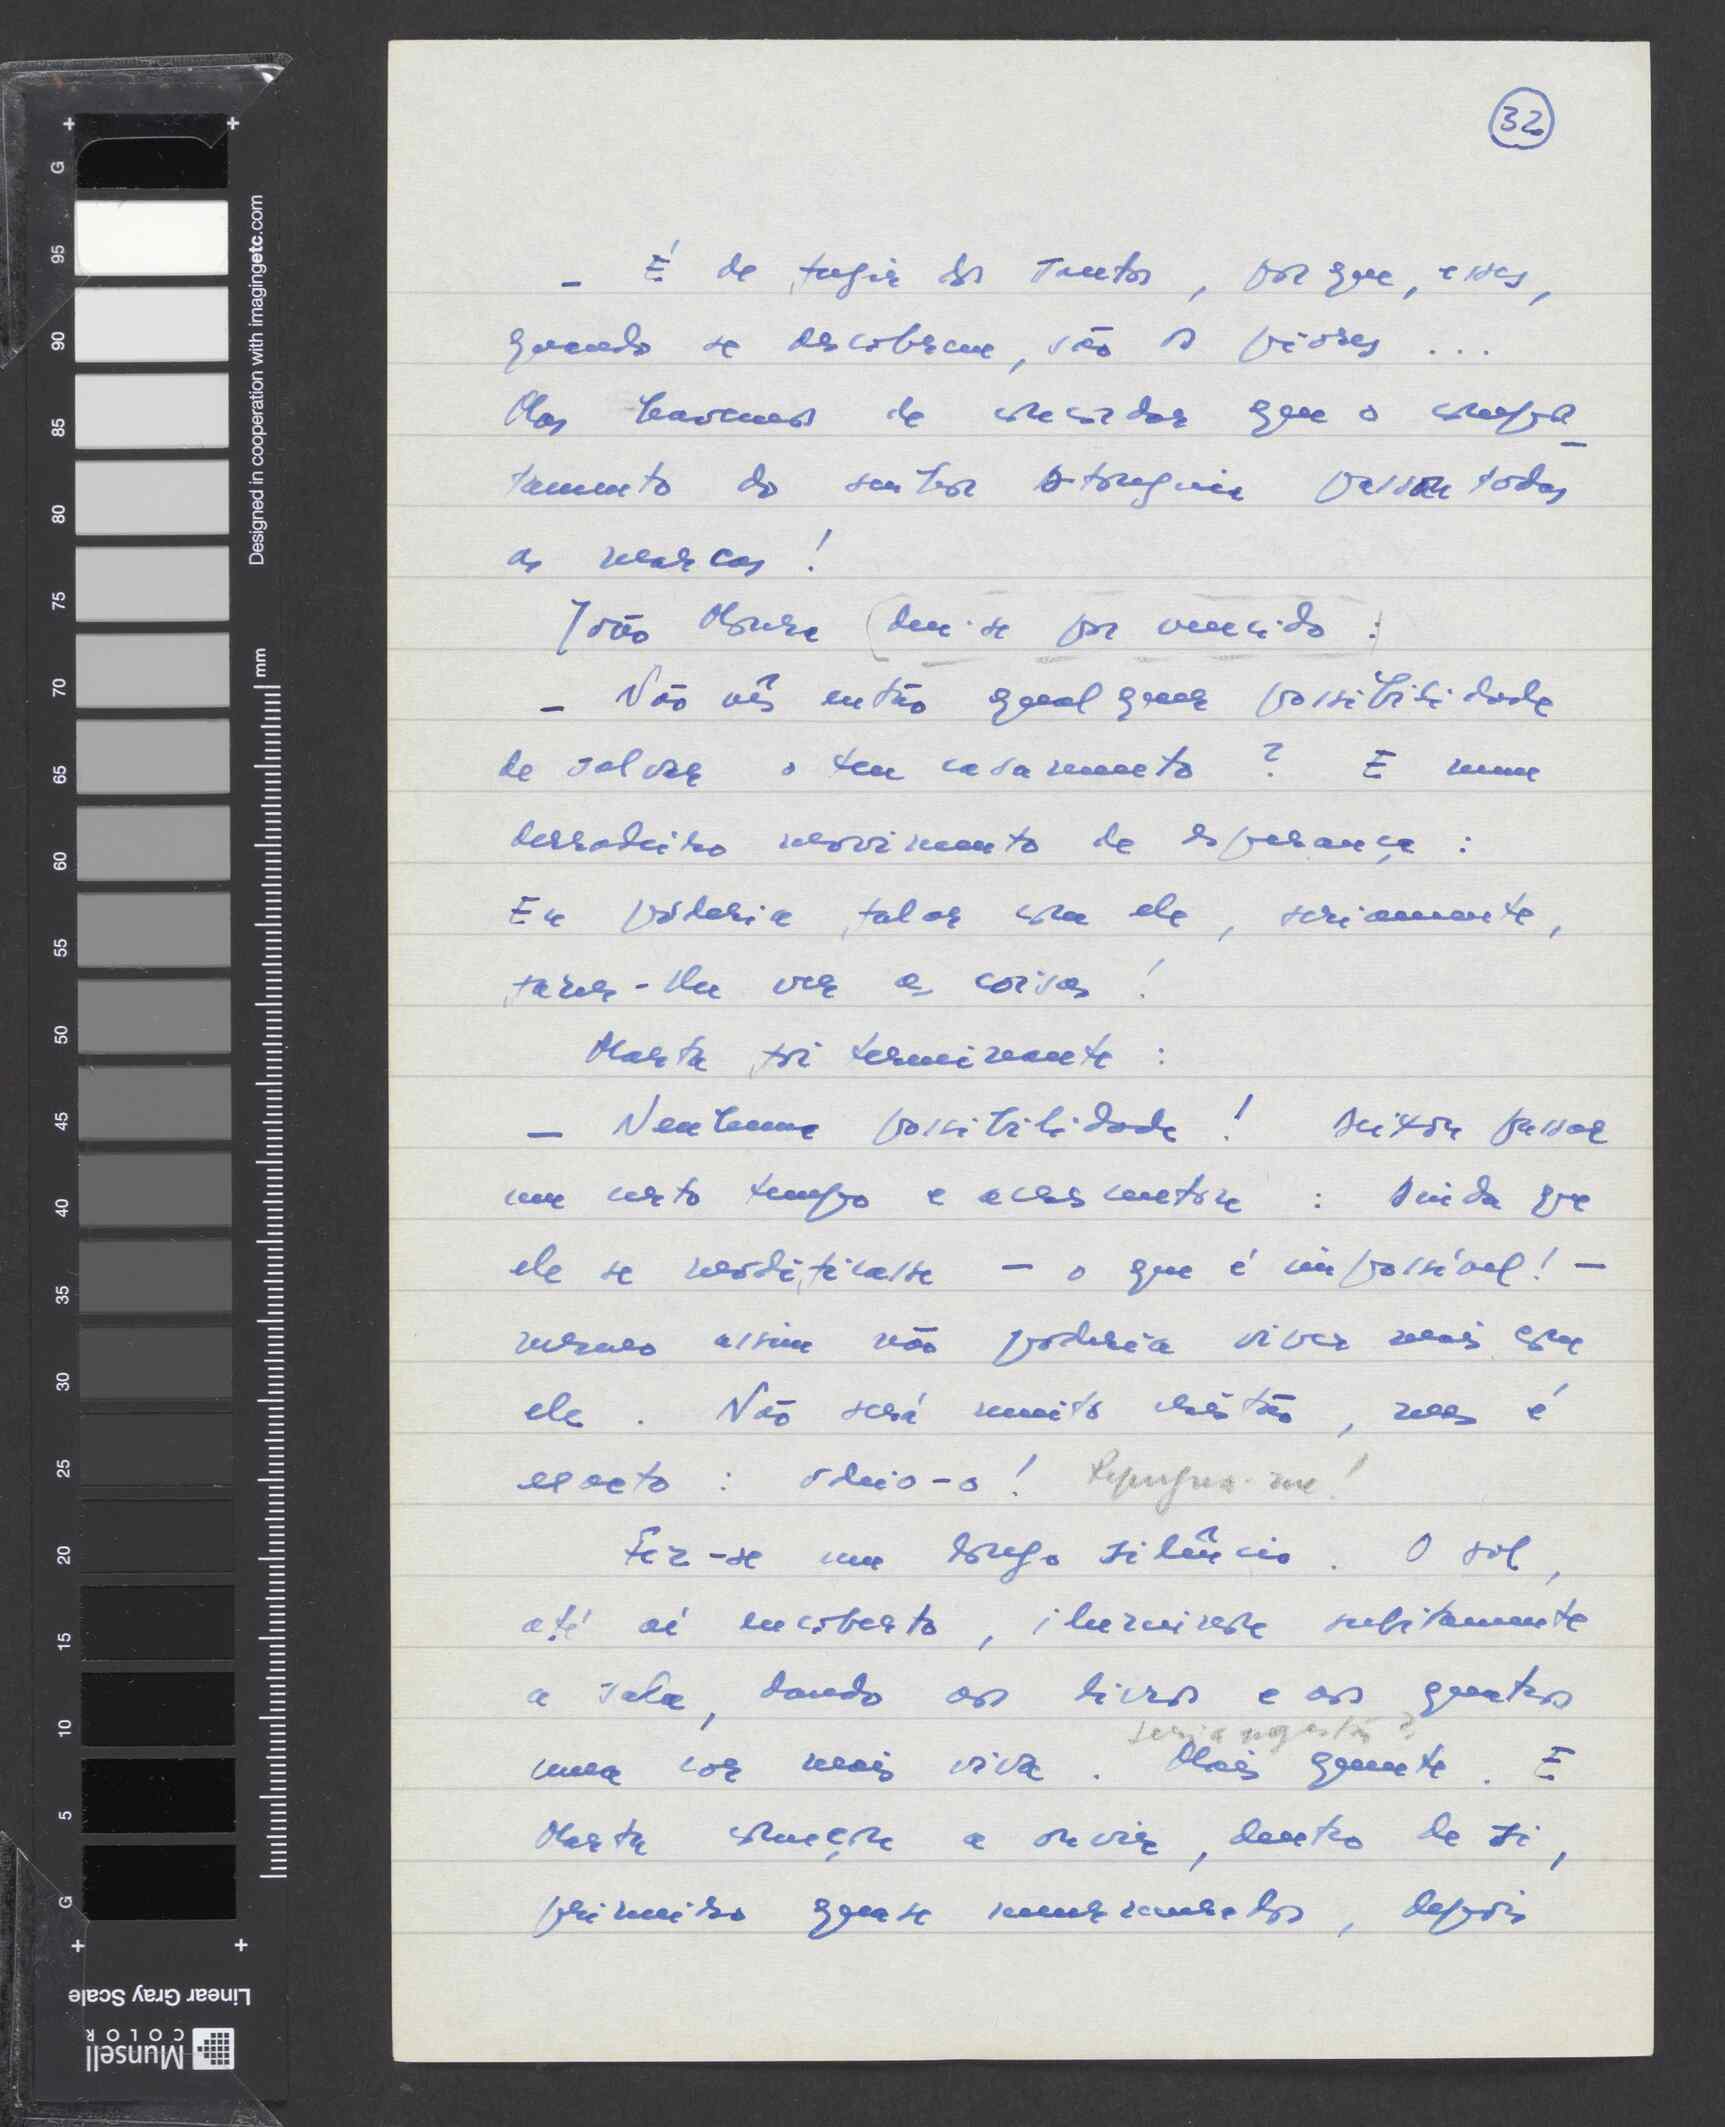 32
– É de fugir dos santos, porque, esses,
quando se descobrem, são os piores...
Mas havemos de concordar que o compor
tamento do senhor passou todas
as marcas!
João Moura deu-se por vencido:
– Não vês então qualquer possibilidade
de salvar o teu casamento? E num
derradeiro movimento de esperança:
Eu poderia falar com ele, seriamente,
fazer-lhe ver as coisas!
Marta foi terminante:
– Nenhuma possibilidade! Deixou passar
um certo tempo e acrescentou: Ainda que
ele se modificasse – o que é impossível! –
mesmo assim não poderia viver mais com
ele. Não será muito cristão, mas é
exacto: odeio-o! Repugna-me!
Fez-se um longo silêncio. O sol,
até aí encoberto, iluminou subitamente
a sala, dando aos livros e aos quadros
uma cor mais viva. Mais quente. E
Marta começou a ouvir, dentro de si,
primeiro quase murmurados, depois
G
95
90
85
80
75
70
65
60
55
50
45
40
35
30
25
20
15
10
5
G
Designed in cooperation with imagingetc.com
mm
Linear Gray Scale
Munsell
COLOR